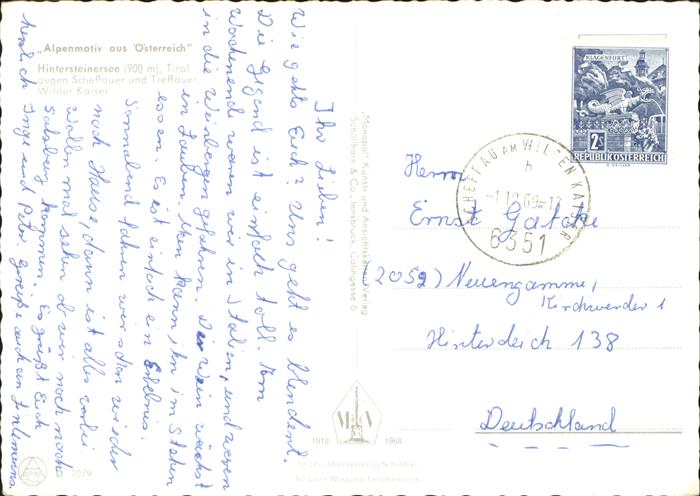 „Alpenmotiv aus Österreich"
Hintersteinersee (900 m), Tirol
gegen Scheffauer und Treffauer,
Wilder Kaiser
Ihr Lieben!
Wie gehts Euch? Uns geht es blendent.
Die Gegend ist einfach toll. Am
Wochenend waren wir in Italien, und waren
in die Weinbergen gefahren. Der Wein wächst
in Lauben. Man kann ihn im Stehen
essen. Es ist einfach ein Erlebnis.
Sonnabend fahren wir schon wieder
nach Hause, dann ist alles vorbei
wollen mal sehen ob wir noch nach
Salzburg kommen. Es grüßt Euch
herzlich Inge und Peter grüße auch an
"Monopol" Kunst- und Ansichtskarten-Verlag
Schöllhorn & Co., Innsbruck, Colingasse 6
1918 1968
50 Jahre Monopolverlag Schöllhorn
50 Jahre Werbung für Österreich
D 1079
KLAGENFURT
2 S
REPUBLIK ÖSTERREICH
SCHEFFAU AM WILDEN KAISER
b
6351
Herrn
Ernst Gatcke
(2052) Neuengamme,
Kirchwerder 1
Hinterdeich 138
Deutschland